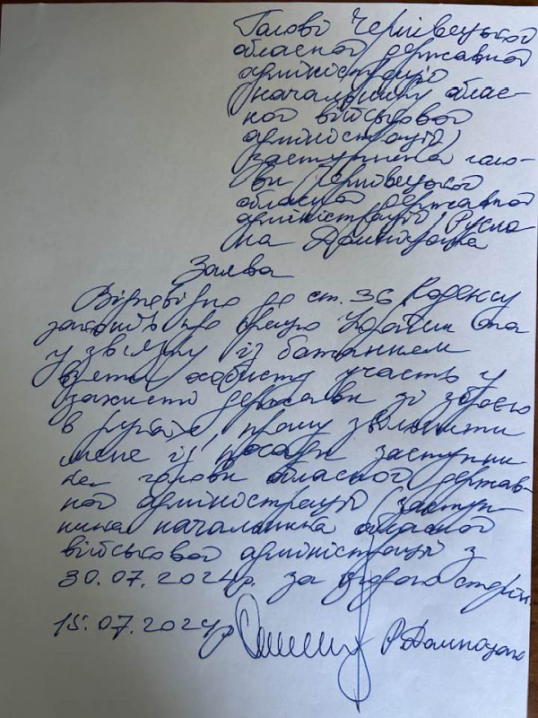 Голові Чернівецької
обласної державної
адміністрації
(начальнику облас-
ної військової
адміністрації)
заступника голо-
ви Чернівецької
обласної державної
адміністрації Русла
на
Заява
Відповідно до ст. 36 Кодексу
законів про працю України та
у зв'язку із бажанням
взяти особисту участь у
захисті держави зі зброєю
в руках, прошу звільнити
мене із посади заступни
ка голови обласної держав-
ної адміністрації (заступ-
ника начальника обласної
військової адміністрації з
30.07.2024р. за угодою сторін.
15.07.2024р